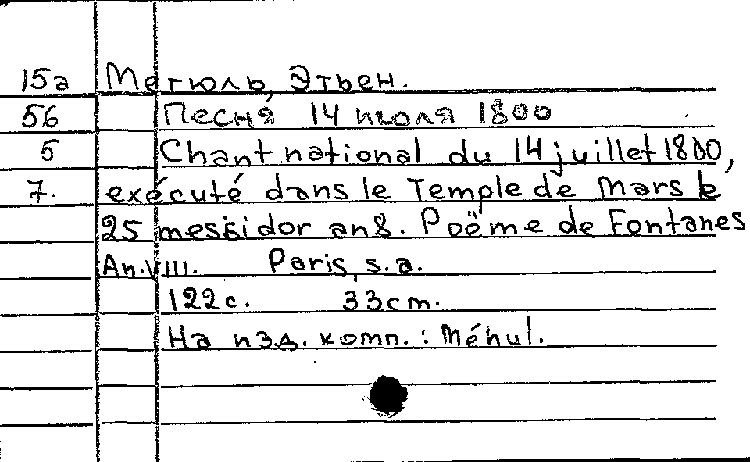 15а Мегюль, Этьен.
56 Песня 14 июля 1800
5 Chant national du 14 juillet 1800,
7. exécuté dans le Temple de Mars le
25 messidor an 8. Poëme de Fontanes
An.VIII. Paris, s.a.
122 c. 33 cm.
На изд. комп.: Méhul.